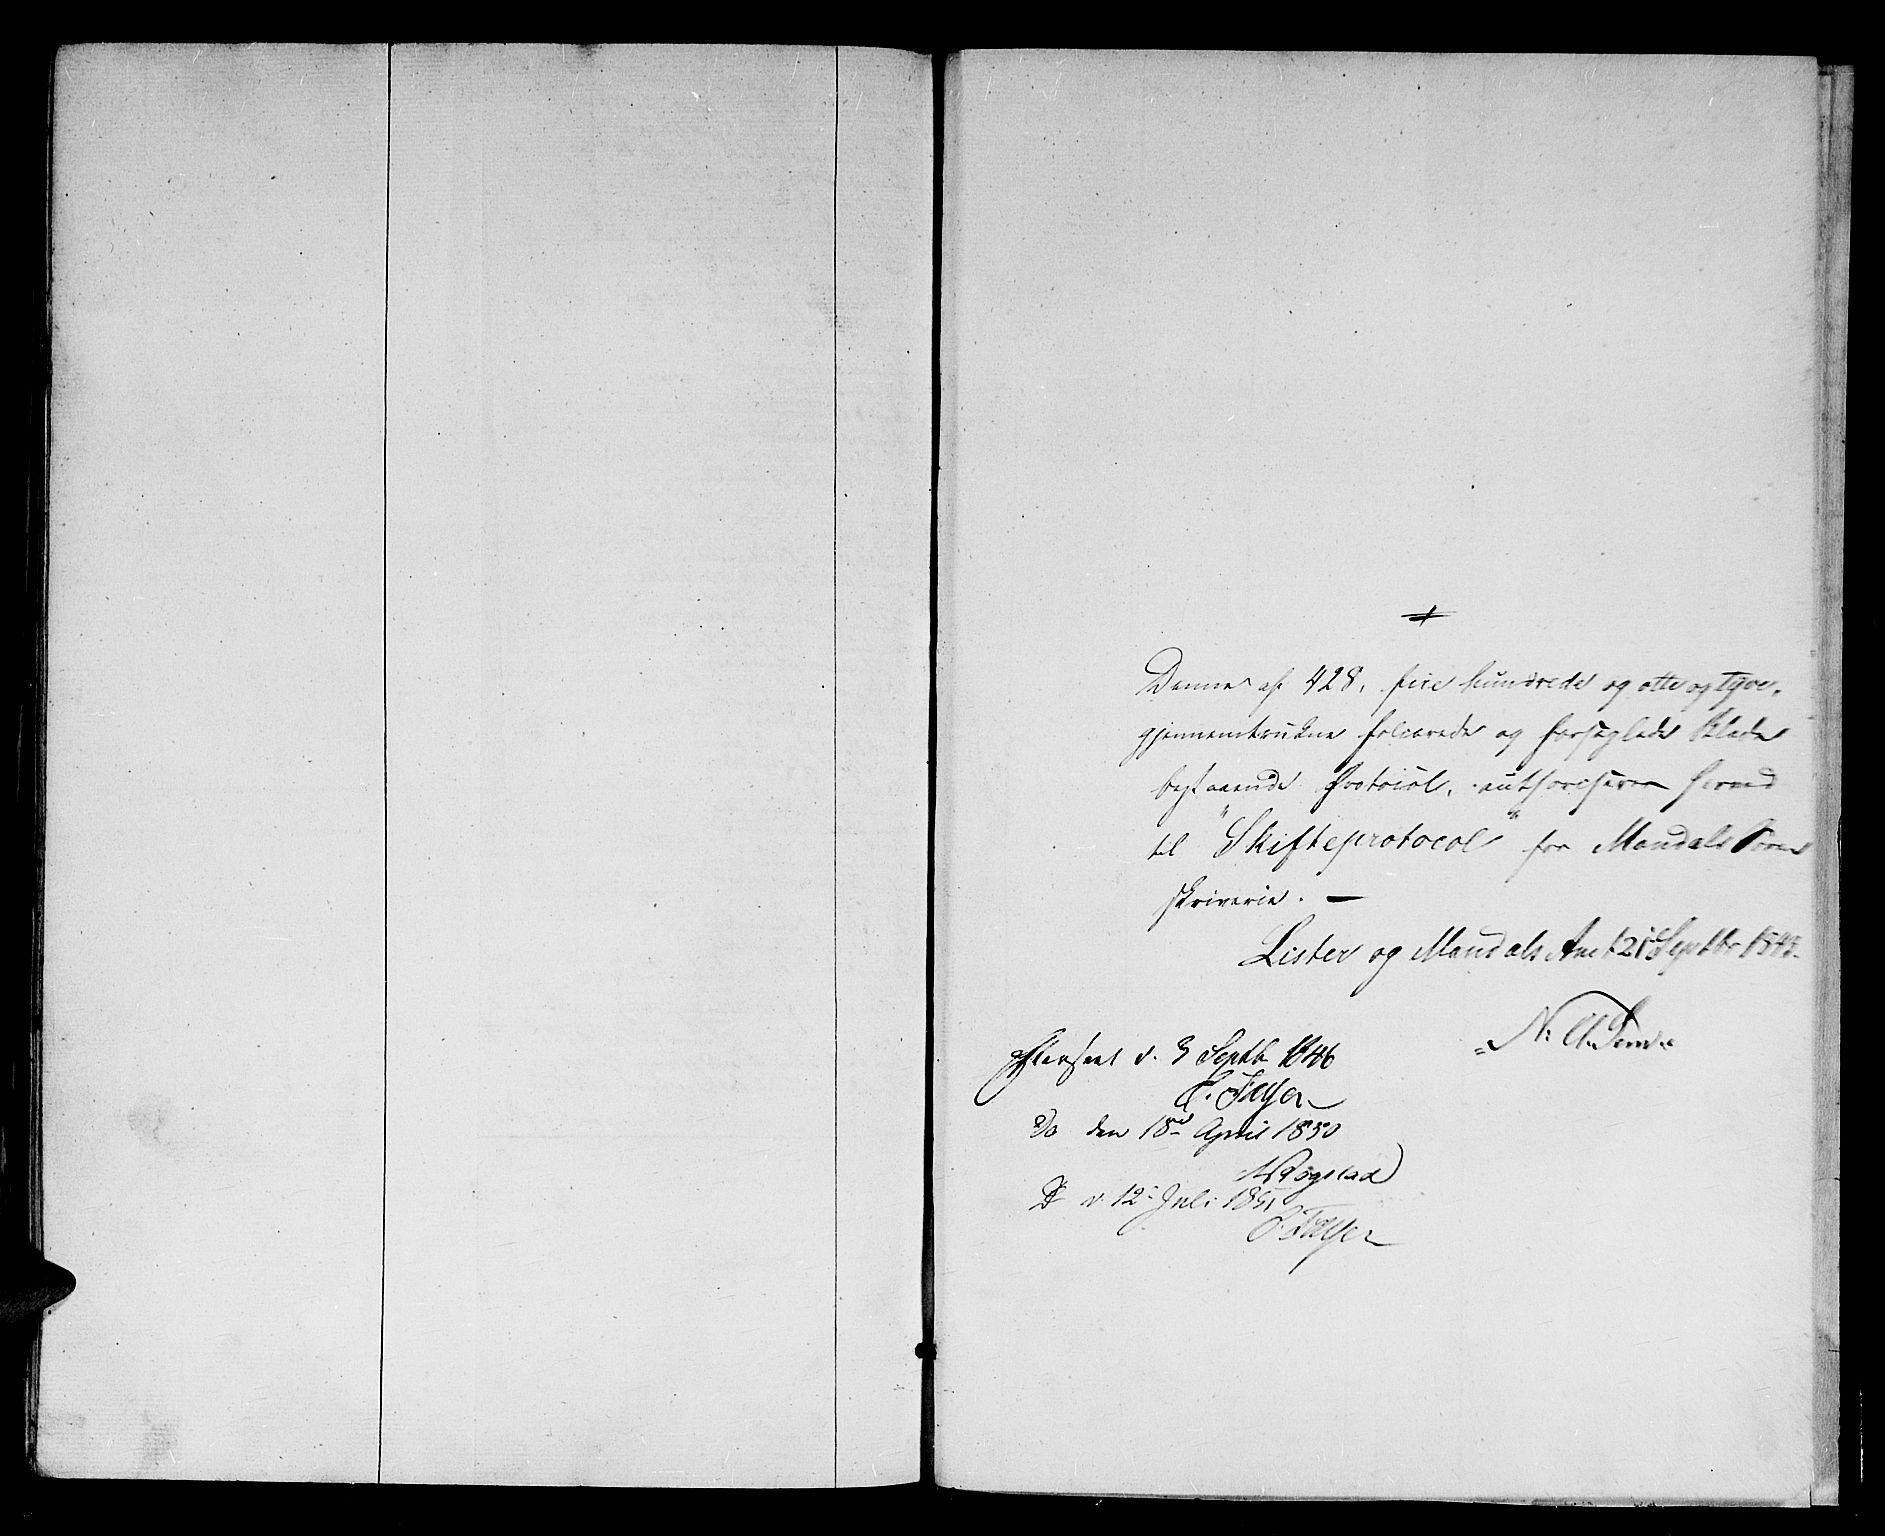 Denne af 428, fire hundrede og otte og tyve,
gjennemtrukne folierede og forseglede Blade
bestaaende Protocol, authoriseres herved
til "Skifteprotocol" for Mandals Soren
skriverie. —
Lister og Mandals Amt 21 Septbr 1843.
N:
Efterseet d. 3 Septb 1846
Do den 18d April 1850
Do d. 12 Juli 1851